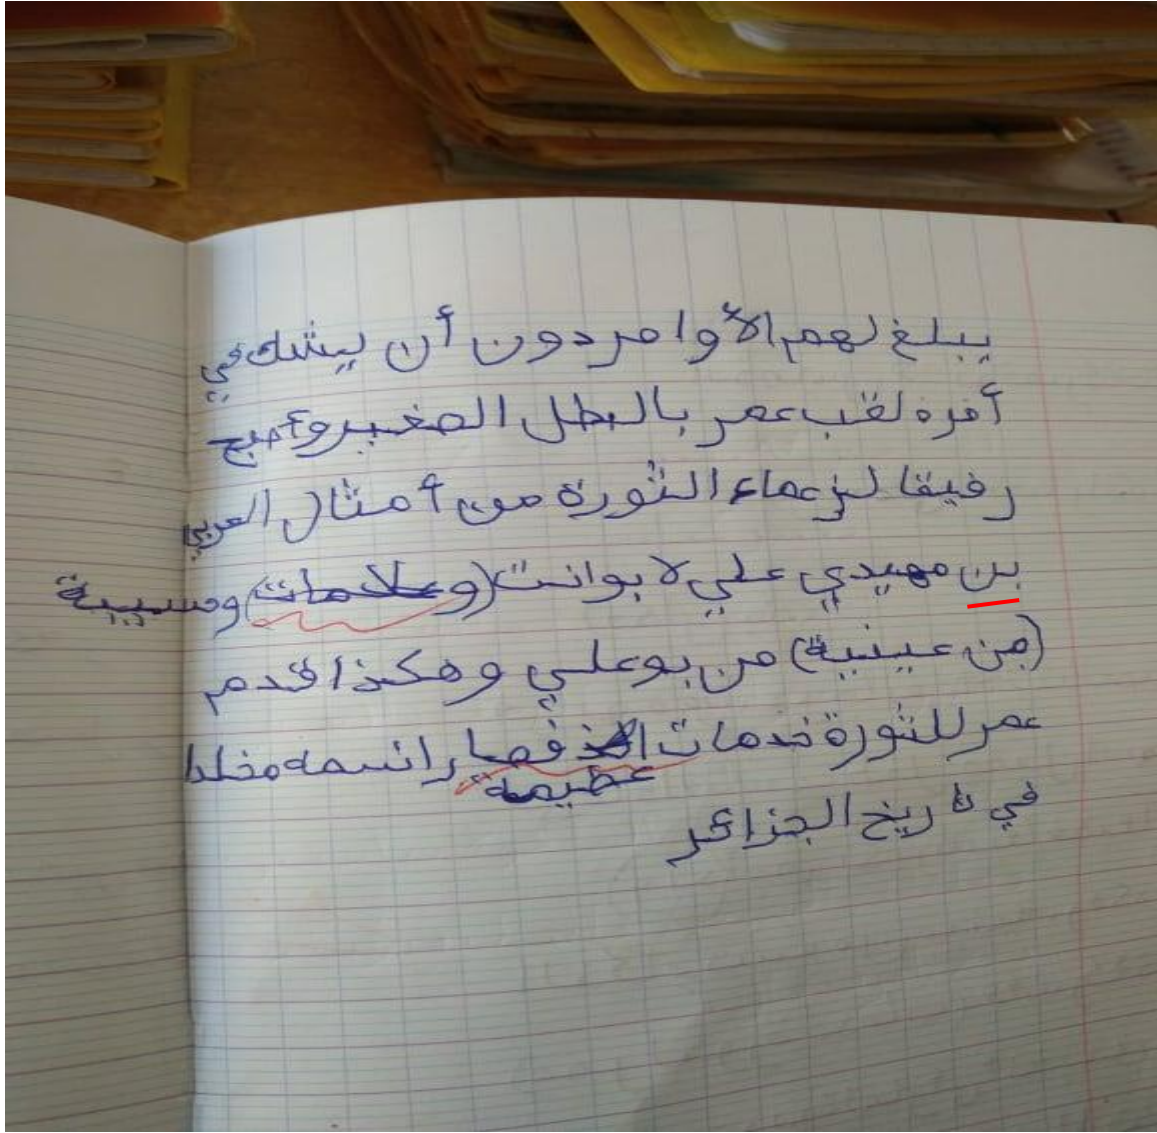 يبلغ لهم الأوامر دون أن يشك في
أمره لقب عمر بالبطل الصغير وأصبح
رفيقا لزعماء الثورة من أمثال العربي
بن مهيدي علي لا بوانت (وعلامات) وحسيبة
(من عينية) من بوعلي وهكذا قدم
عمر للثورة خدمات فصار اسمه مخلدا
عظيمة
في تاريخ الجزائر